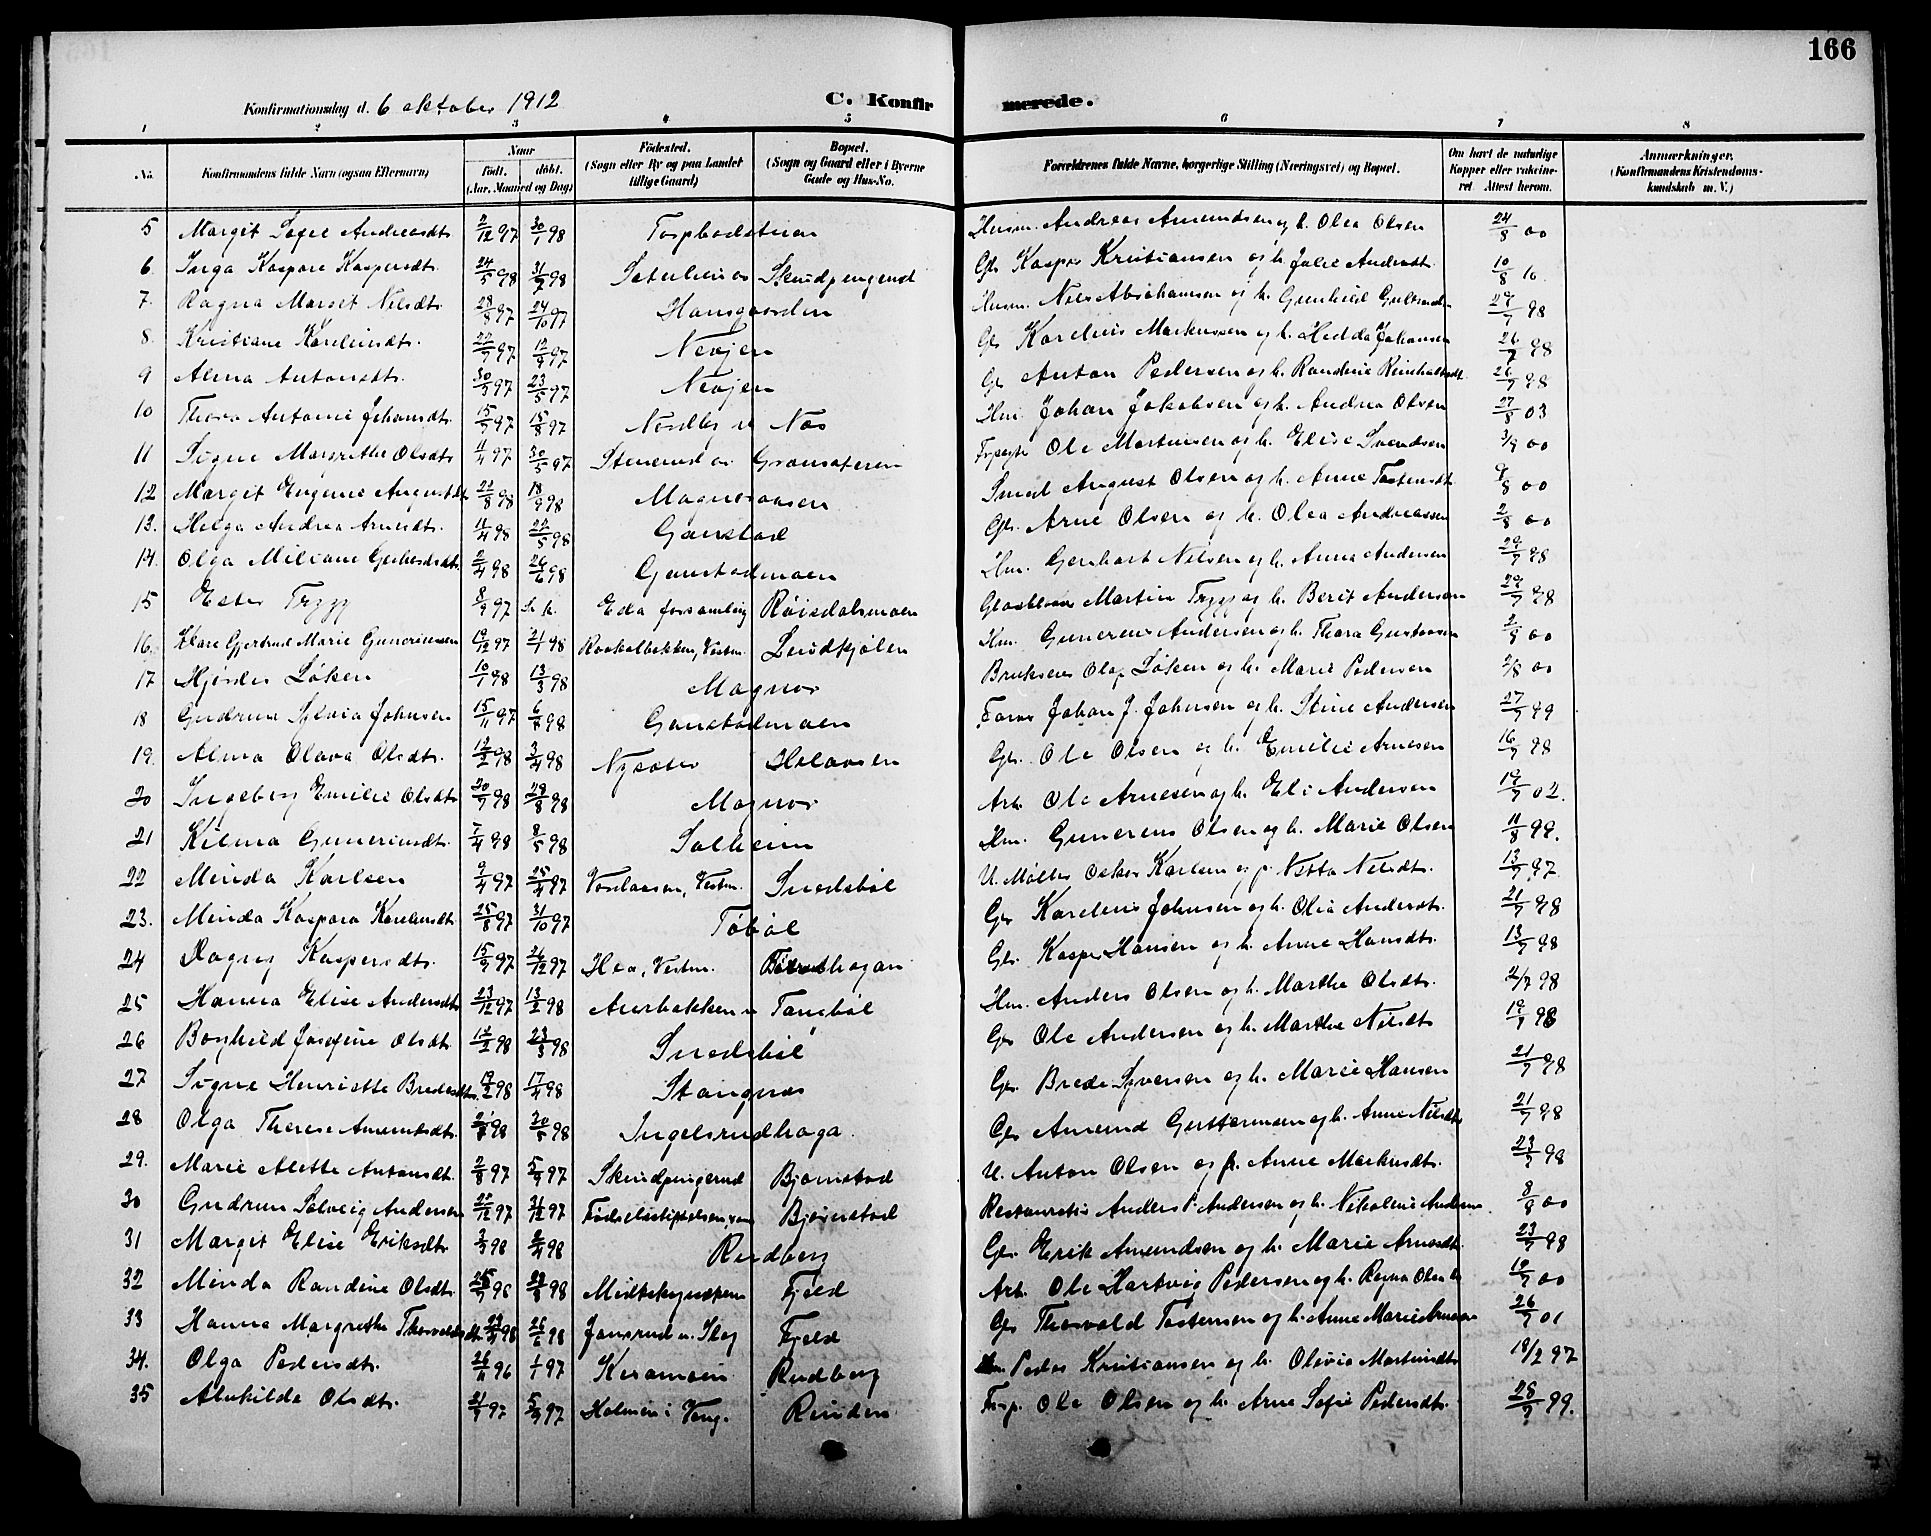 166
Konfirmationsdag d. 6 oktober 1912 C. Konfirmerede.
1 2 3 4 5 6 7 8
No. Konfirmandens fulde Navn (ogsaa Efternavn) Naar født. døbt. (Aar, Maaned og Dag) Fødested. (Sogn eller By og paa Landet tillige Gaard) Bopæl. (Sogn og Gaard eller i Byerne Gade og Hus-No. Forældrenes fulde Navne, borgerlige Stilling (Næringsvei) og Bopæl. Om havt de naturlige Kopper eller vakcineret. Attest herom. Anmærkninger. (Konfirmandens Kristendomskundskab m. V.)
5 Margit Sofie Andreasdt. 2/12 97 30/1 98 Torpbodsteren Husm. Andreas Amundsen og h. Olea Olsen 24/8 00
6. Inga Kaspare Kaspersdt. 24/5 98 31/7 98 Skindpengerud Gbr Kasper Kristiansen og h. Julie Andersdt. 10/8 10.
7. Ragna Margit Nilsdt. 28/8 97 24/10 97 Hansgaarden Husm. Nils Abrahamsen og h. Gunhild 29/7 98
8. Kristiane Kareliusdt. 12/9 97 Nevjen Gbr Karelius Markussen og h. Hedda Johansen 26/7 98
9 Alma Antonsdt. 23/5 97 Nevjen Gbr Anton Pedersen og h. Randine 26/7 98
10 Thora Antonie Johansdt. 15/8 97 Nordby Nos Hm. Johan Jakobsen og h. Andrea Olsen 27/8 03
11 Signe Margrethe Olsdt. 11/4 97 30/5 97 Stenerud Gransæteren Ole Martinsen og h. Elise Svendsen 3/8 00
12 Margit Eugenie Augustdt. 18/9 98 Magnusaasen Smed August Olsen og h. Anne Tostensdt. 9/8 00
13. Helga Andrea Arnesdt. 11/4 98 22/5 98 Gaustad Gbr. Arne Olsen og h. Olea Andreassen 2/8 00
14. Olga Miliane 2/4 98 26/6 98 Gaustadmoen Hm. Gerhart Nilsen og h. Anna Andersen 29/7 98
15 Ester Trygg 8/9 97 Eda forsamling Røisdalsmoen Martin Trygg og h. Berit Andersen 29/7 98
16. Klare Gjertrud Marie Guneriussen 19/12 97 2/1 98 Raakelbakken, Vestm. Lundkjølen Hm. Gunerius Andersen og h. Thora Gustavsen 2/8 00
17 Hjørdis Løken 10/1 98 13/3 98 Magnor Olaf Løken og h. Marie Pedersen 2/8 00
18 Gudrun Sylvia Johnsen 15/11 97 Gaustadmoen Johan J. Johnsen og h. Stine Andersen 27/7 99
19. Alma Olava Olsdt. 12/2 98 3/4 98 Nysæter Helaasen Gbr. Ole Olsen og h. Emilie Arnesen 16/7 98
20 Ingeborg Emilie Olsdt. 20/7 98 28/8 98 Magnor Arb. Ole Arnesen og h. Eli Andersen 19/7 02.
21 Kilma Gunerisdt. 7/4 98 8/5 98 Solheim Hm. Gunerius Olsen og h. Marie Olsen 11/8 99.
22 Minda Karlsen 9/4 97 25/4 97 Vestm. Snedsbøl U. Møller Oskar Karlsen og p. Netta Nilsdt. 13/7 97
23. Minda Kaspara Kareliusdt. 25/8 97 31/10 97 Tøbøl Gbr Karelius Johnsen og h. Olia Andersdt. 21/7 98
24 Ragny Kaspersdt. 15/9 97 26/12 97 Hoa, Vestm. Gbr. Kasper Hansen og h. Anne Hansdt. 13/7 98
25 Hanna Elise Andersdt. 23/12 97 13/2 98 Aurbakken Tansbøl Hm. Anders Olsen og h. Marthe Olsdt. 2/7 98
26 Borghild Josefine Olsdt. 12/2 98 23/3 98 Snedsbøl Gbr Ole Andersen og h. Marthe Nilsdt. 19/7 98
27 Signe Henriette Bredesdt. 17/4 98 Stangnes Gbr. Brede Syversen og h. Marie Hansen 21/7 98
28 Olga Therese Amundsdt. 98 30/5 98 Ingelsrudhaga. Gbr Amund Guttormsen og h. Anne Nilsdt. 21/7 98
29. Marie Alette Antonsdt. 2/8 97 5/9 97 Skindpengerud Bjørnstad U. Anton Olsen og p. Anne Markusdt. 23/7 98
30 Gudrun Solveig Andersen 97 97 Fødselsstiftelsen Bjørnstad Anders P. Andersen og h. Nikoline Andersen 8/8 00
31 Margit Elise Eriksdt. 3/3 98 98 Rudberg Gbr. Erik Amundsen og h. Marie Arnesdt. 23/7 98
32 Minda Randine Olsdt. 98 Fjeld Arb. Ole Hartvig Pedersen og h. Ragna Olsen 19/7 00
33 Hanna Margrethe Thorvaldsdt. 98 98 Jansrud Fjeld Gbr Thorvald Tostensen og h. Anne Marie 26/7 01
34. Olga Pedersdt. 96 97 Rudberg Peder Kristiansen og h. Olivia Martinsdt. 18/2 97
35 Olsdt. 97 5/9 97 Holmen i Ving. Rinden Forp. Ole Olsen og h. Arne Sofie Pedersdt. 28/7 99.